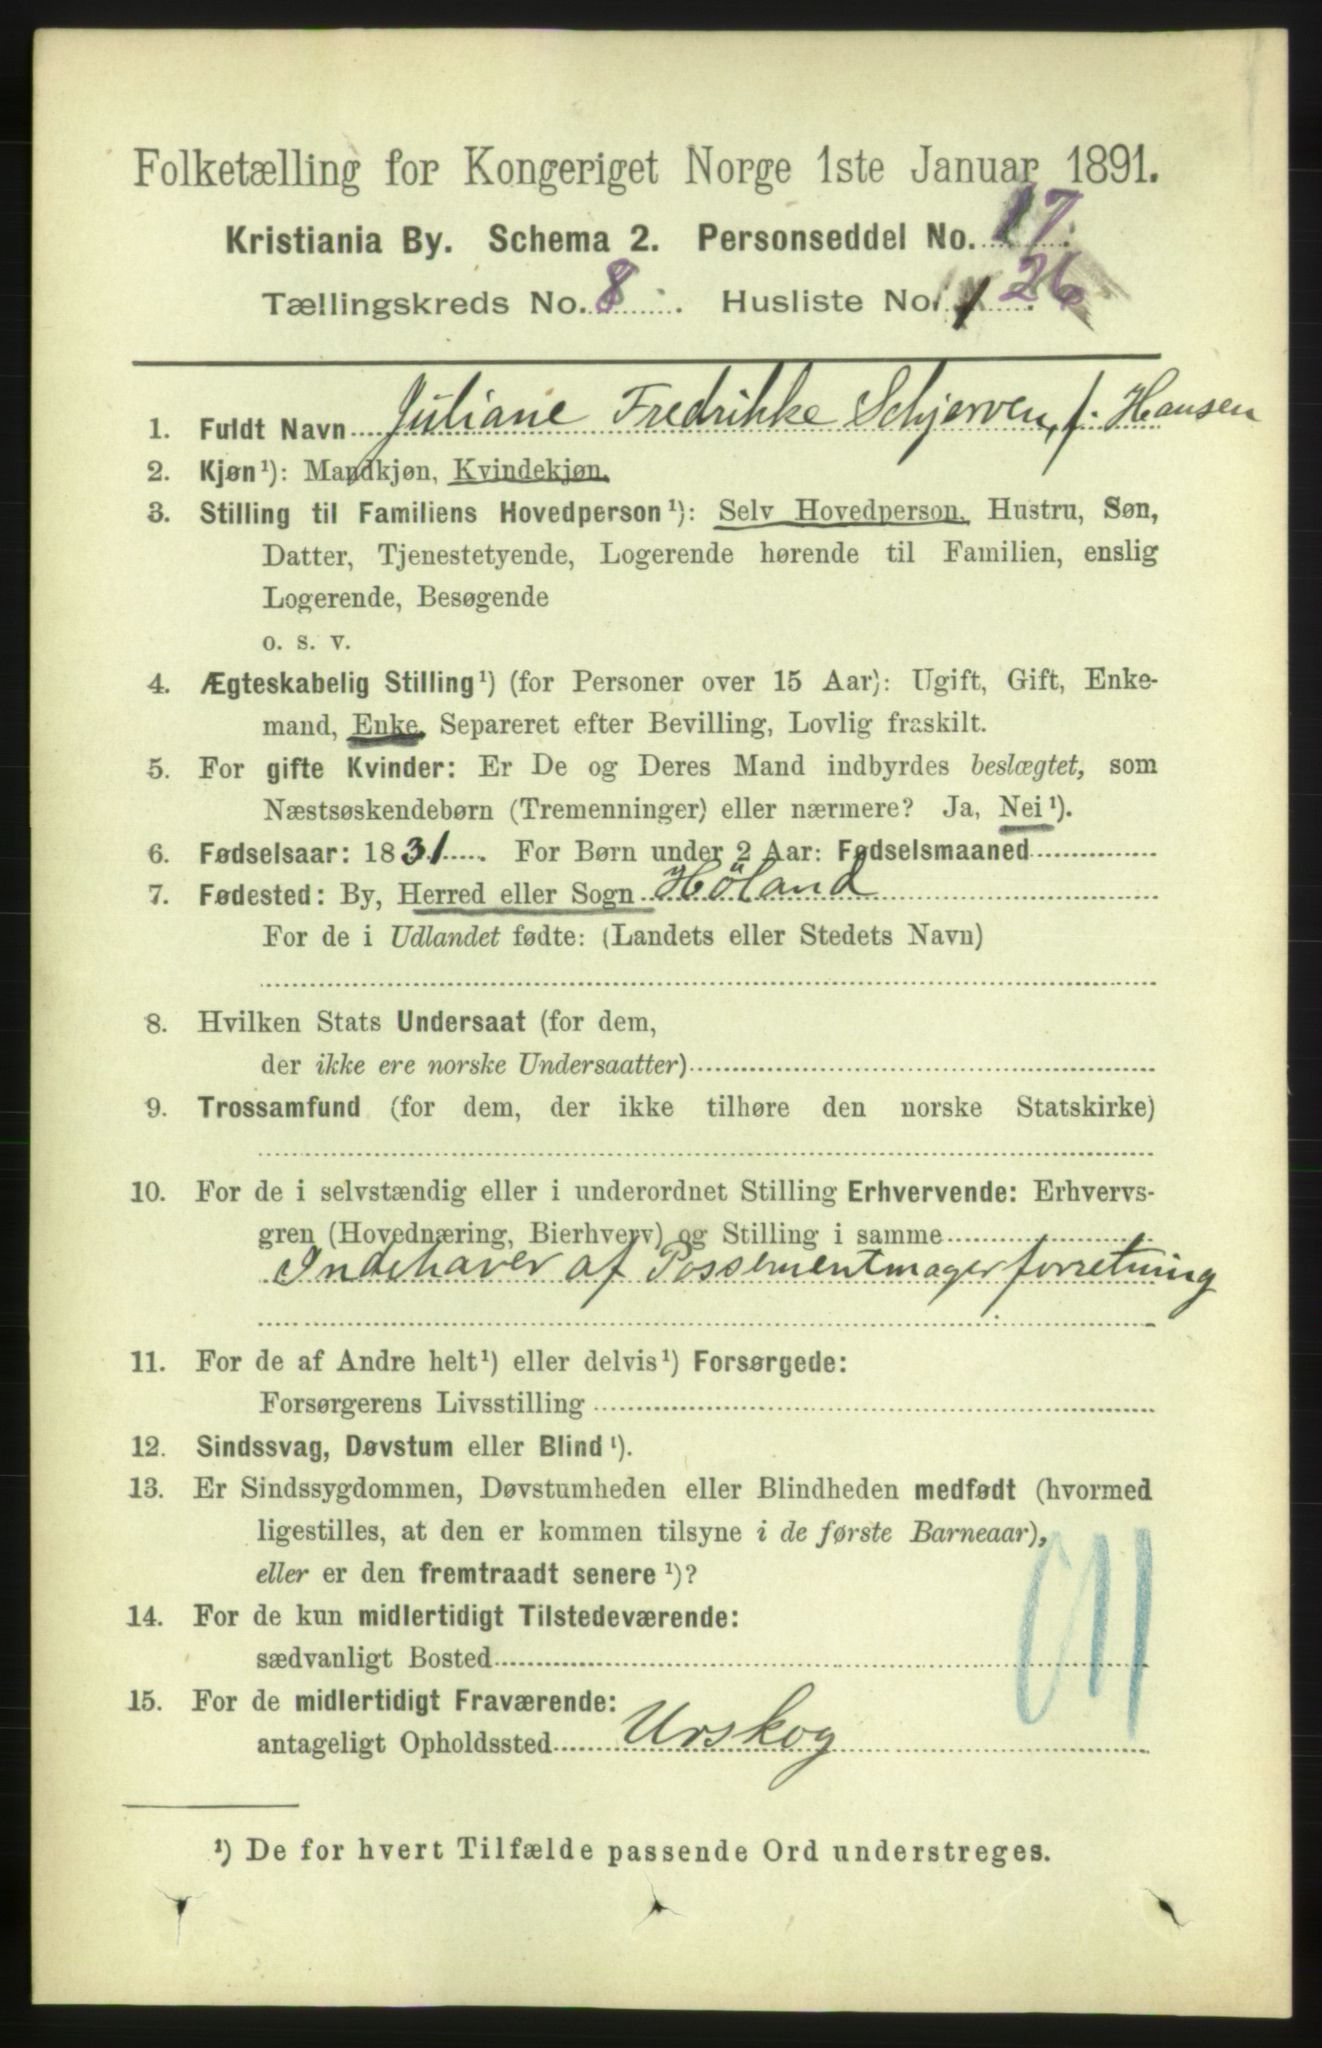 Folketælling for Kongeriget Norge 1ste Januar 1891.
Kristiania By. Schema 2. Personseddel No. 17.
Tællingskreds No. 8. Husliste No. 1 26.
1. Fuldt Navn Juliane Fredrikke Schjerven, f. Hansen
2. Kjøn¹): Mandkjøn, Kvindekjøn.
3. Stilling til Familiens Hovedperson¹): Selv Hovedperson, Hustru, Søn,
Datter, Tjenestetyende, Logerende hørende til Familien, enslig
Logerende, Besøgende
o. s. v.
4. Ægteskabelig Stilling¹) (for Personer over 15 Aar): Ugift, Gift, Enke-
mand, Enke, Separeret efter Bevilling, Lovlig fraskilt.
5. For gifte Kvinder: Er De og Deres Mand indbyrdes beslægtet, som
Næstsøskendebørn (Tremenninger) eller nærmere? Ja, Nei¹).
6. Fødselsaar: 1831. For Børn under 2 Aar: Fødselsmaaned
7. Fødested: By, Herred eller Sogn Höland
For de i Udlandet fødte: (Landets eller Stedets Navn)
8. Hvilken Stats Undersaat (for dem,
der ikke ere norske Undersaatter)
9. Trossamfund (for dem, der ikke tilhøre den norske Statskirke)
10. For de i selvstændig eller i underordnet Stilling Erhvervende: Erhvervs-
gren (Hovednæring, Bierhverv) og Stilling i samme
Indehaver af Possementmagerforretning
11. For de af Andre helt¹) eller delvis¹) Forsørgede:
Forsørgerens Livsstilling
12. Sindssvag, Døvstum eller Blind¹).
13. Er Sindssygdommen, Døvstumheden eller Blindheden medfødt (hvormed
ligestilles, at den er kommen tilsyne i de første Barneaar),
eller er den fremtraadt senere¹)?
14. For de kun midlertidigt Tilstedeværende:
sædvanligt Bosted
15. For de midlertidigt Fraværende:
antageligt Opholdssted Urskog
¹) De for hvert Tilfælde passende Ord understreges.